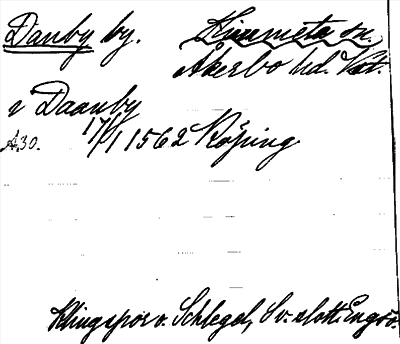 Danby by. Himmeta sn.
Åkerbo hd. Vstm.
i Daanby
17/1 1562 Köping
A30.
Klingspor o. Schlegel, Sv. slott. Engsö.